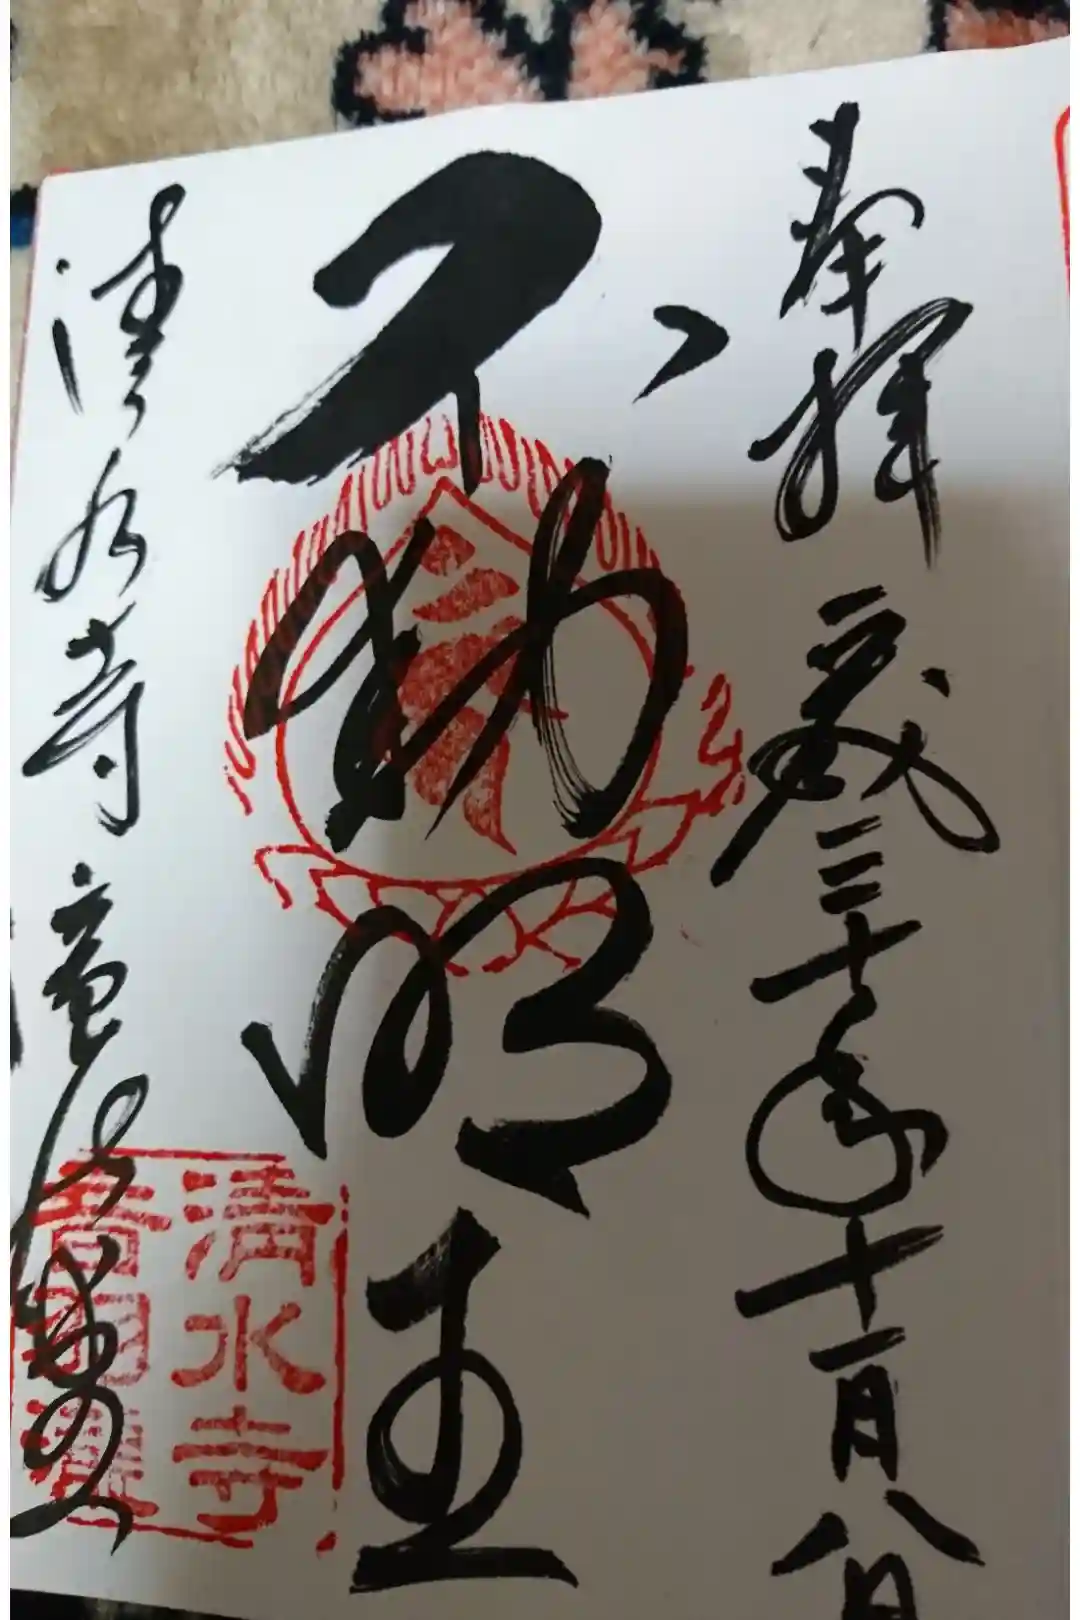 奉拝 平成三十年十一月八日
不動明王
清水寺
清水寺
音羽瀧